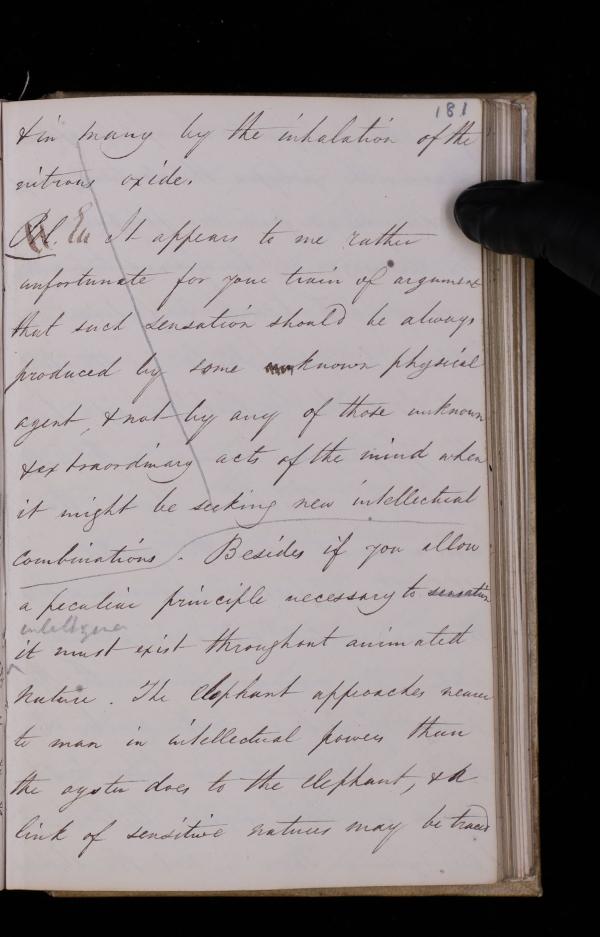 181
& in many by the inhalation of the
nitrous oxide.
Eu It appears to me rather
unfortunate for your train of argument
that such sensation should be always
produced by some known physical
agent, & not by any of those unknown
& extraordinary acts of the mind when
it might be seeking new intellectual
combinations. Besides if you allow
a peculiar principle necessary to sensation
intelligence
it must exist throughout animated
nature. The Elephant approaches nearer
to man in intellectual powers than
the oyster does to the Elephant, & a
link of sensitive natures may be traced